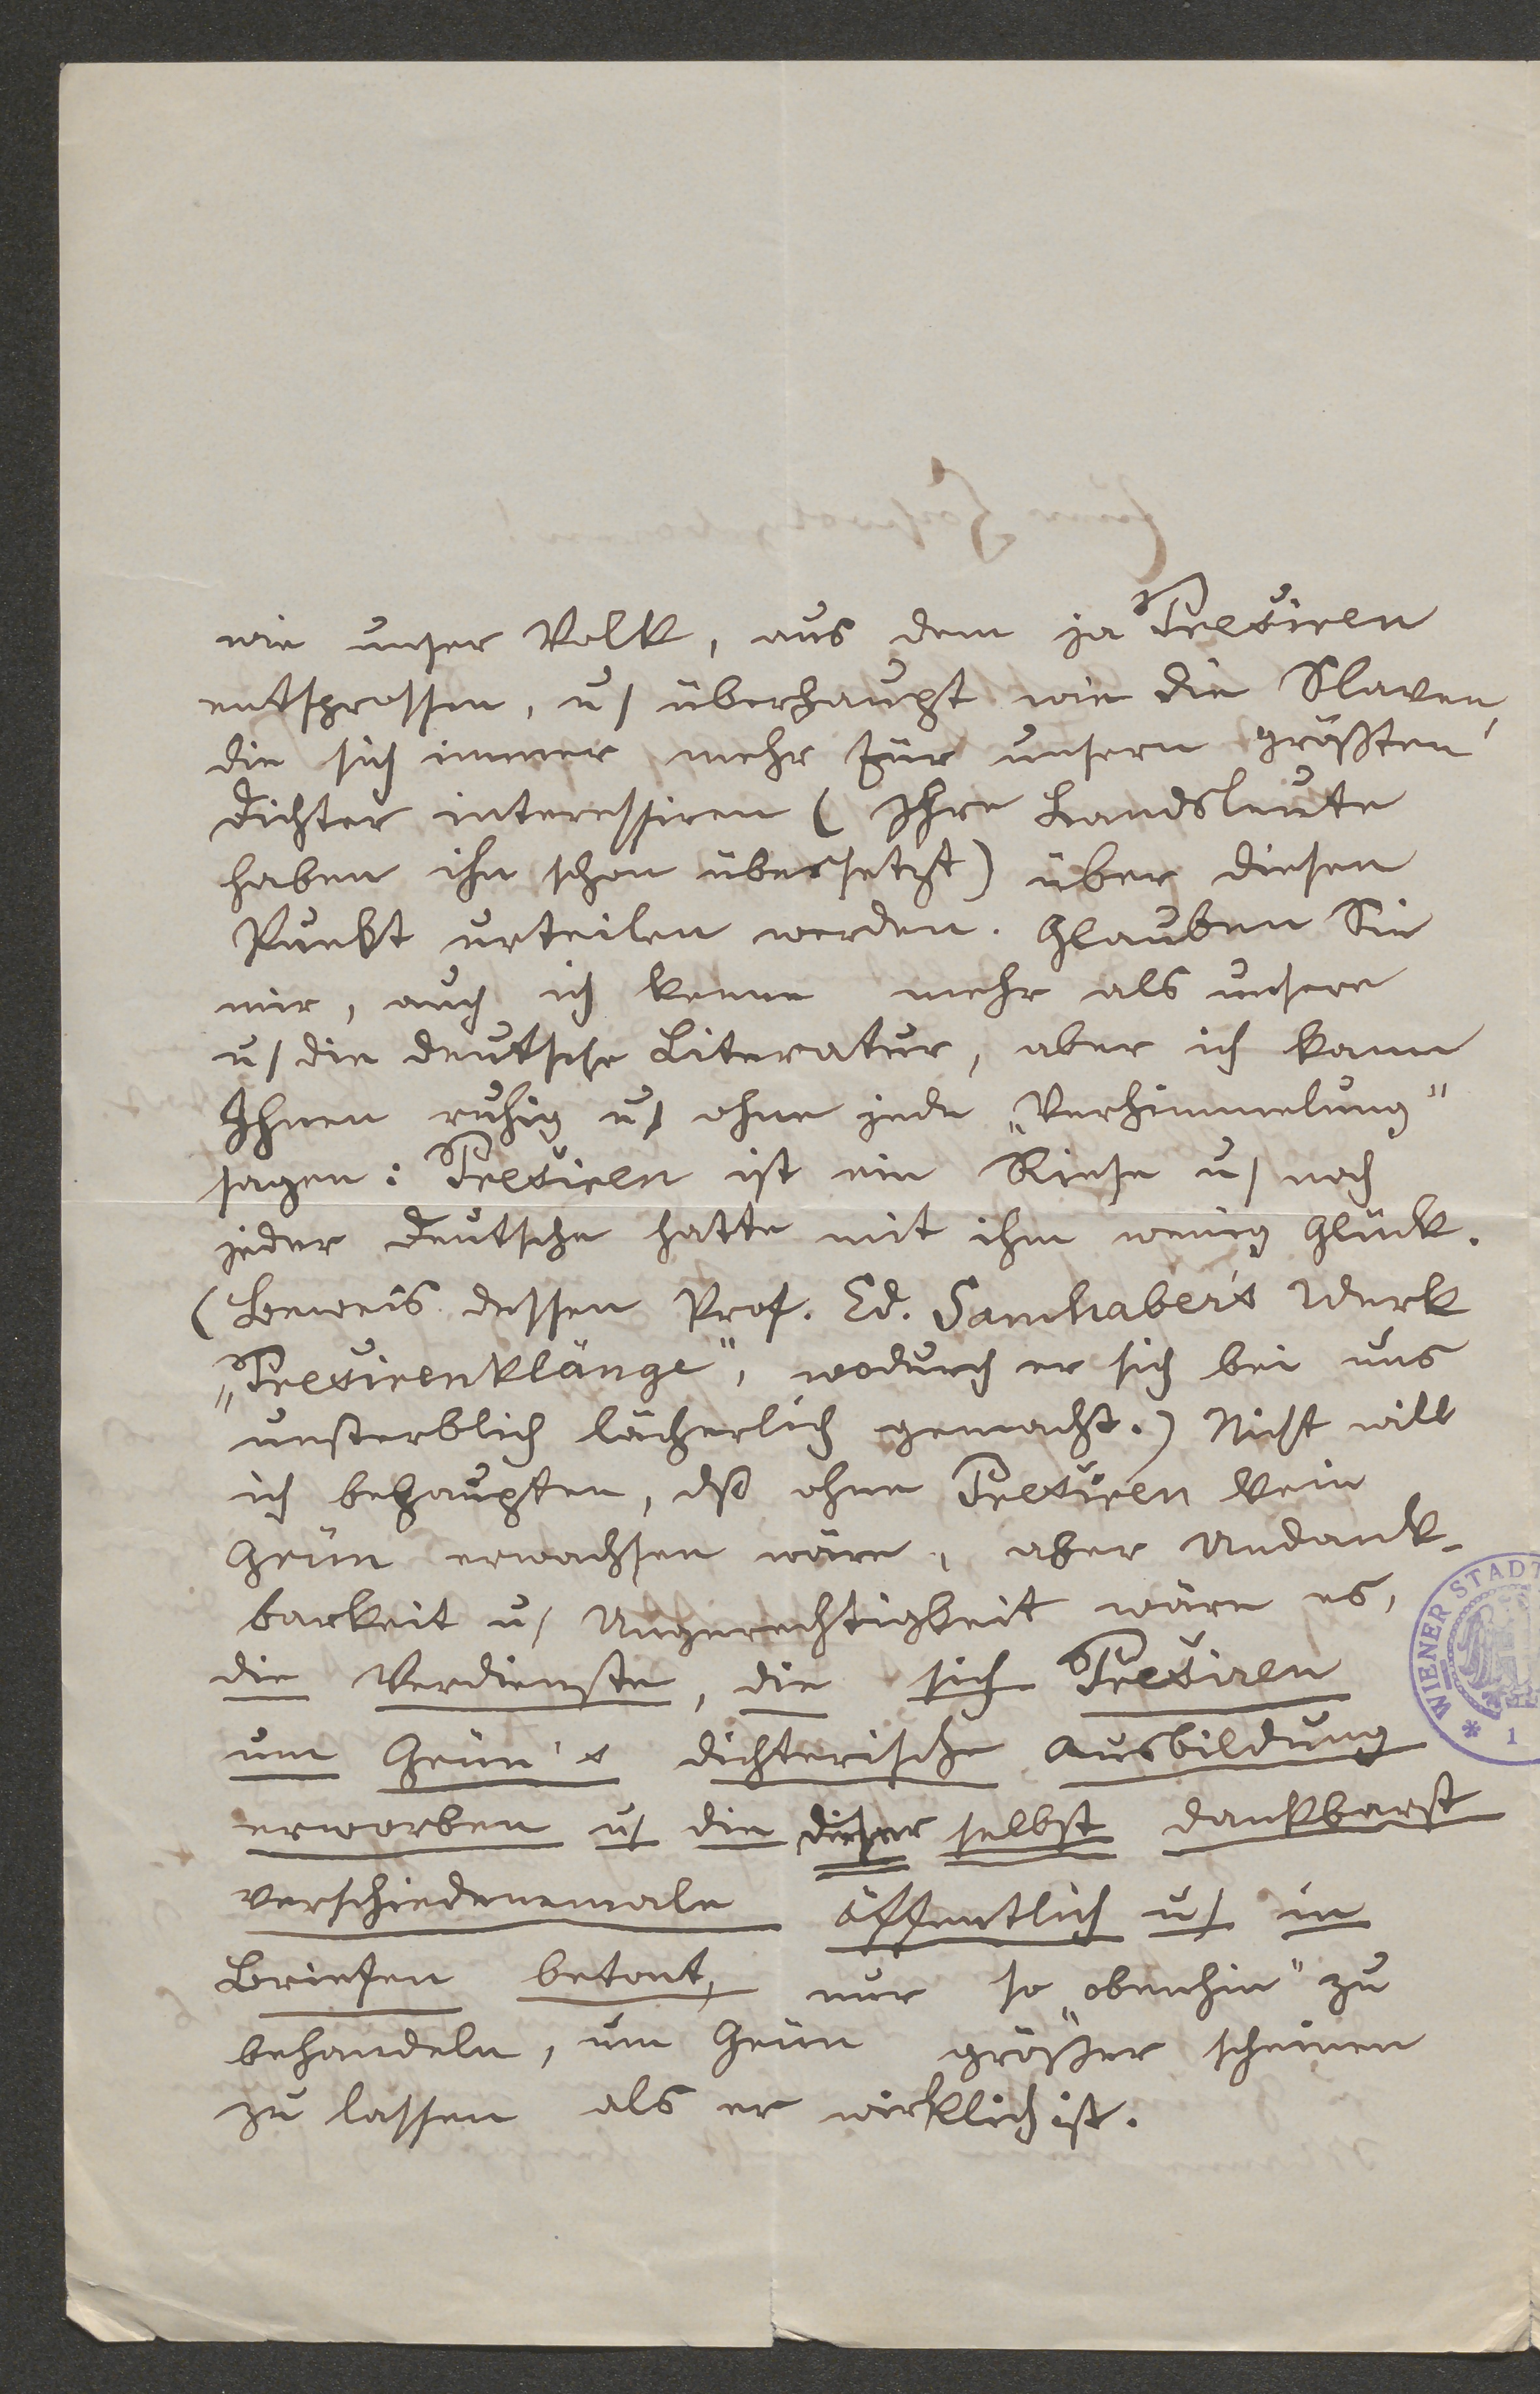 wie unser Volk, aus dem ja Preširen
entsprossen, u/ überhaupt wie die Slaven,
die sich immer mehr für unsern größten
Dichter interessiren (Ihre Landsleute
haben ihn schon übersetzt) über diesen
Punkt urteilen werden. Glauben Sie
mir, auch ich kenne mehr als unsere
u/ die deutsche Literatur, aber ich kann
Ihnen ruhig u/ ohne jede „Verhimmelung"
sagen: Preširen ist ein Riese u/ noch
jeder Deutsche hatte mit ihm wenig Glück.
(Beweis dessen Prof. Ed. Samhaber's Werk
„Preširenklänge", wodurch er sich bei uns
unsterblich lächerlich gemacht.) Nicht will
ich behaupten, dß ohne Prešıren kein
Grün erwachsen wäre, aber Undank-
barkeit u/ Ungerechtigkeit wäre es,
die Verdienste, die sich Preširen
um Grün's dichterische Ausbildung
erworben u/ die dieser selbst dankbarst
verschiedenemale öffentlich u/ in
Briefen betont, nur so „obenhin" zu
behandeln, um Grün größer scheinen
zu lassen als er wirklich ist.
WIENER STADT
* 1